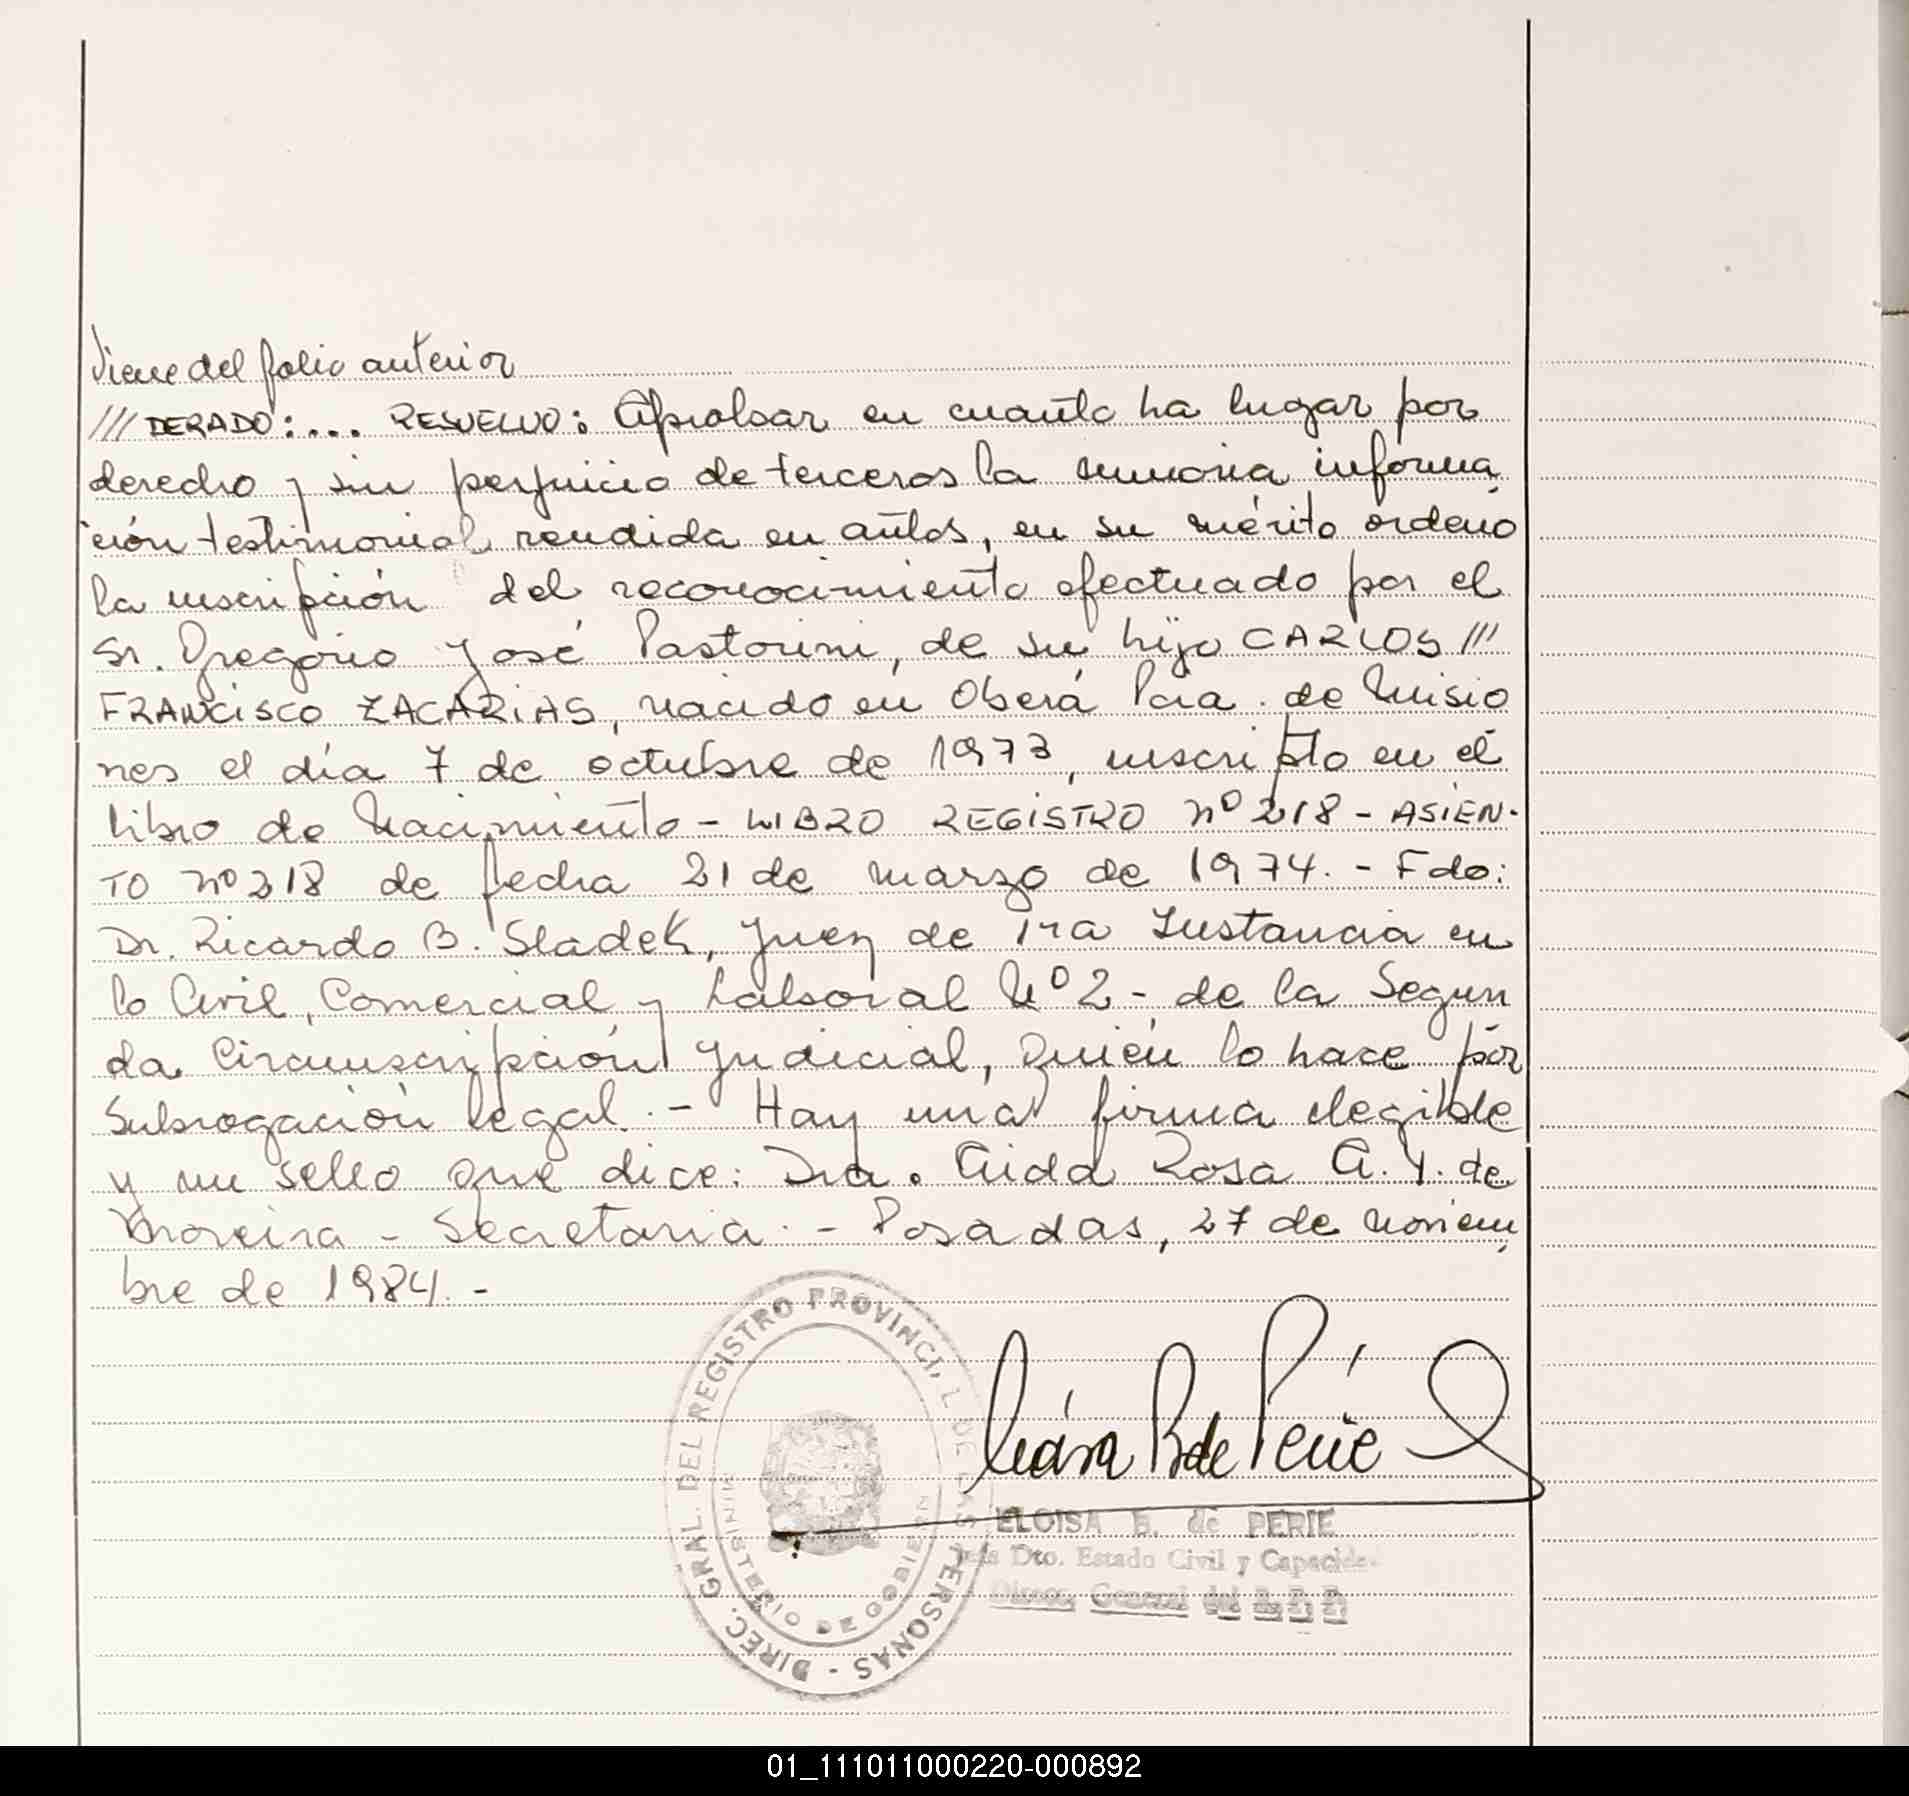 Viene del folio anterior
///DERADO:... RESUELVO: Aprobar en cuanto ha lugar por
derecho y sin perjuicio de terceros la sumaria informa
ción testimonial rendida en autos, en su mérito ordeno
la inscripción del reconocimiento efectuado por el
Sr. Gregorio José Pastorini, de su hijo CARLOS ///
FRANCISCO ZACARIAS, nacido en Oberá Pcia. de Misio
nes el día 7 de octubre de 1973, inscripto en el
libro de Nacimiento - LIBRO REGISTRO Nº 218 - ASIEN-
TO Nº 218 de fecha 21 de marzo de 1974. - Fdo:
Dr. Ricardo B. Sladek, Juez de 1ra Instancia en
lo Civil, Comercial y Laboral Nº 2 - de la Segun
da Circunscripción Judicial, quién lo hace por
Subrogación legal. - Hay una firma ilegible
y un sello que dice: Dra. Aida Rosa A. Y. de
Moreira - Secretaria. - Posadas, 27 de noviem
bre de 1984. -
DIREC. GRAL. DEL REGISTRO PROVINCI L DE LAS PERSONAS -
MINISTERIO DE GOBIERN
B de Perié
ELOISA B. de PERIE
Dto. Estado Civil y Capacida
Direc. General del R. P. P.
01_111011000220-000892